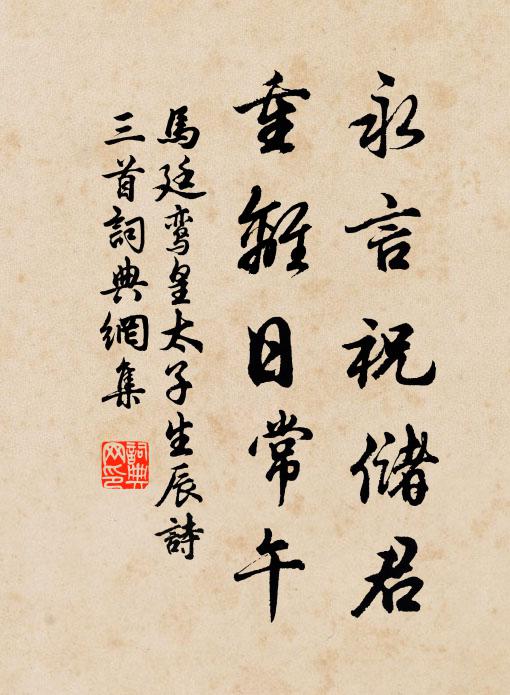 永言祝儲君
重離日常午
馬廷鸞皇太子生辰詩
三首詞典網集
詞典网印